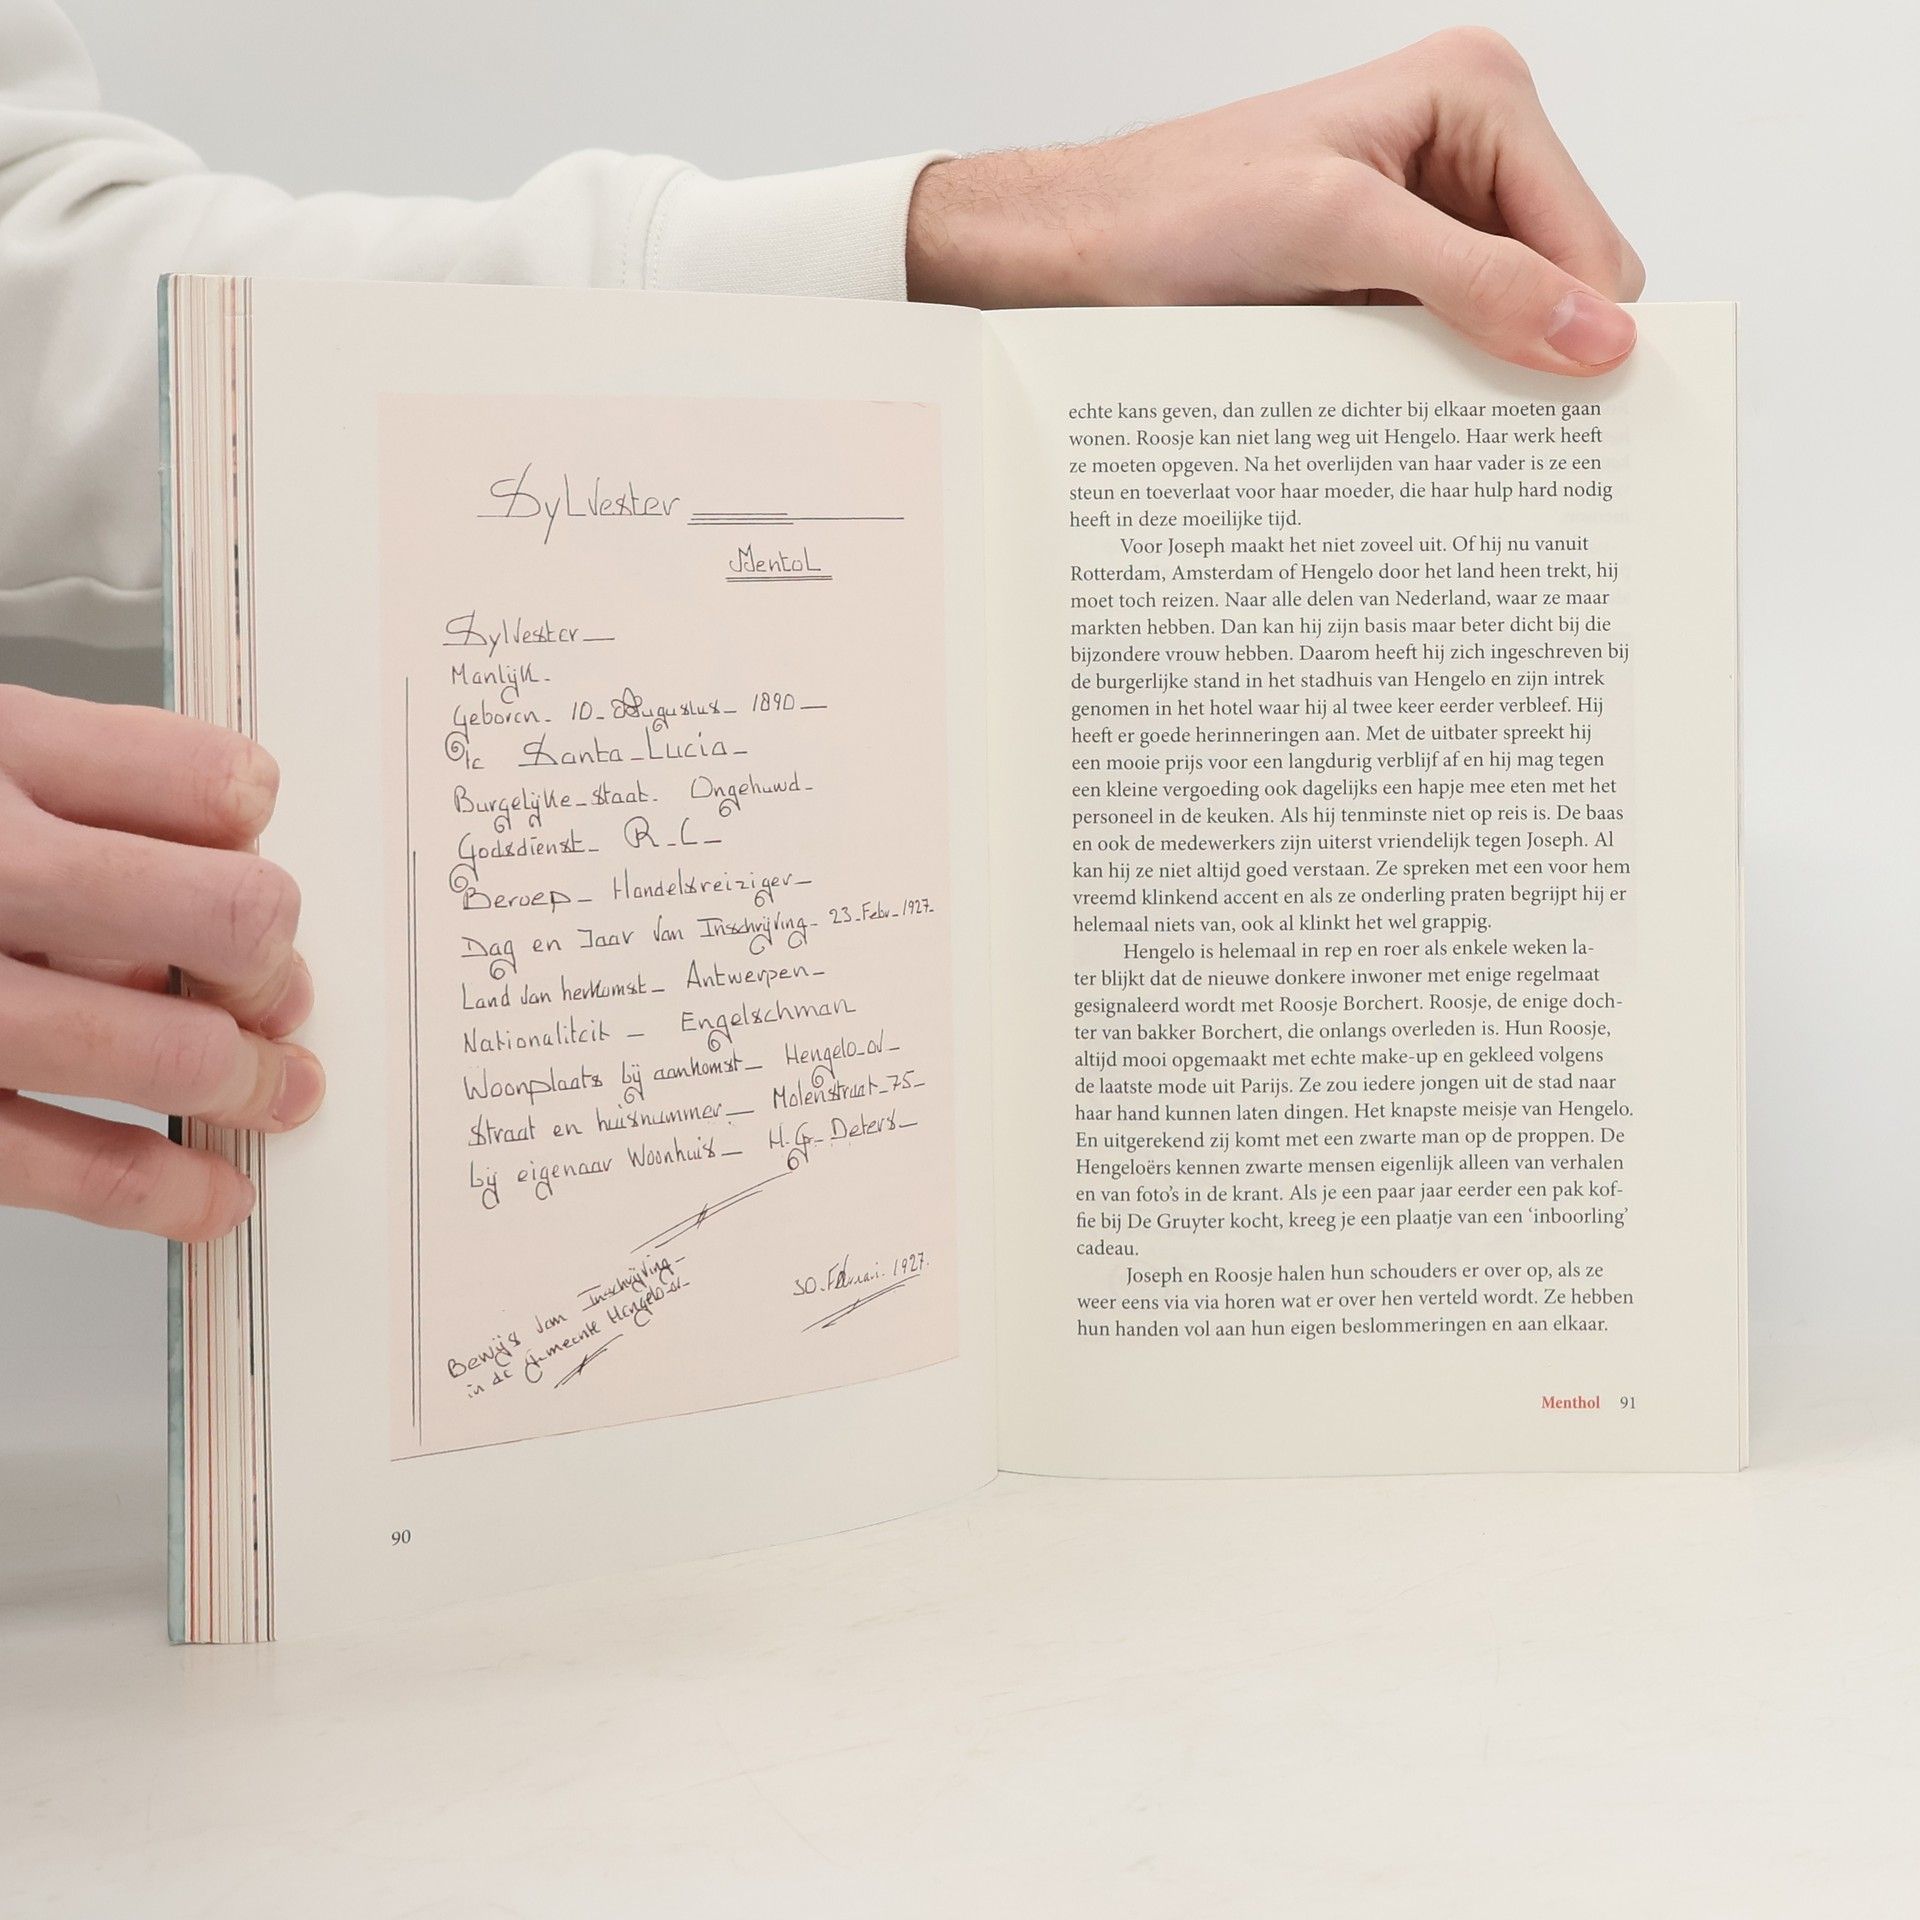 Sylvester
Mentol
Sylvester_
Manlijk_
Geboren_ 10_Augustus_ 1890_
te Santa_Lucia_
Burgelijke_Staat. Ongehuwd_
Godsdienst_ R_C_
Beroep_ Handelsreiziger_
Dag en Jaar van Inschrijving_ 23_Febr_1927_
Land van herkomst_ Antwerpen_
Nationaliteit_ Engelschman
Woonplaats bij aankomst_ Hengelo_ov_
Straat en huisnummer_ Molenstraat_75_
bij eigenaar Woonhuis_ H.G_Deters_
Bewijs van Inschrijving_
in de Gemeente Hengelo_ov_
30.Februari.1927.
90
echte kans geven, dan zullen ze dichter bij elkaar moeten gaan
wonen. Roosje kan niet lang weg uit Hengelo. Haar werk heeft
ze moeten opgeven. Na het overlijden van haar vader is ze een
steun en toeverlaat voor haar moeder, die haar hulp hard nodig
heeft in deze moeilijke tijd.
Voor Joseph maakt het niet zoveel uit. Of hij nu vanuit
Rotterdam, Amsterdam of Hengelo door het land heen trekt, hij
moet toch reizen. Naar alle delen van Nederland, waar ze maar
markten hebben. Dan kan hij zijn basis maar beter dicht bij die
bijzondere vrouw hebben. Daarom heeft hij zich ingeschreven bij
de burgerlijke stand in het stadhuis van Hengelo en zijn intrek
genomen in het hotel waar hij al twee keer eerder verbleef. Hij
heeft er goede herinneringen aan. Met de uitbater spreekt hij
een mooie prijs voor een langdurig verblijf af en hij mag tegen
een kleine vergoeding ook dagelijks een hapje mee eten met het
personeel in de keuken. Als hij tenminste niet op reis is. De baas
en ook de medewerkers zijn uiterst vriendelijk tegen Joseph. Al
kan hij ze niet altijd goed verstaan. Ze spreken met een voor hem
vreemd klinkend accent en als ze onderling praten begrijpt hij er
helemaal niets van, ook al klinkt het wel grappig.
Hengelo is helemaal in rep en roer als enkele weken la-
ter blijkt dat de nieuwe donkere inwoner met enige regelmaat
gesignaleerd wordt met Roosje Borchert. Roosje, de enige doch-
ter van bakker Borchert, die onlangs overleden is. Hun Roosje,
altijd mooi opgemaakt met echte make-up en gekleed volgens
de laatste mode uit Parijs. Ze zou iedere jongen uit de stad naar
haar hand kunnen laten dingen. Het knapste meisje van Hengelo.
En uitgerekend zij komt met een zwarte man op de proppen. De
Hengeloërs kennen zwarte mensen eigenlijk alleen van verhalen
en van foto’s in de krant. Als je een paar jaar eerder een pak kof-
fie bij De Gruyter kocht, kreeg je een plaatje van een ‘inboorling’
cadeau.
Joseph en Roosje halen hun schouders er over op, als ze
weer eens via via horen wat er over hen verteld wordt. Ze hebben
hun handen vol aan hun eigen beslommeringen en aan elkaar.
Menthol 91